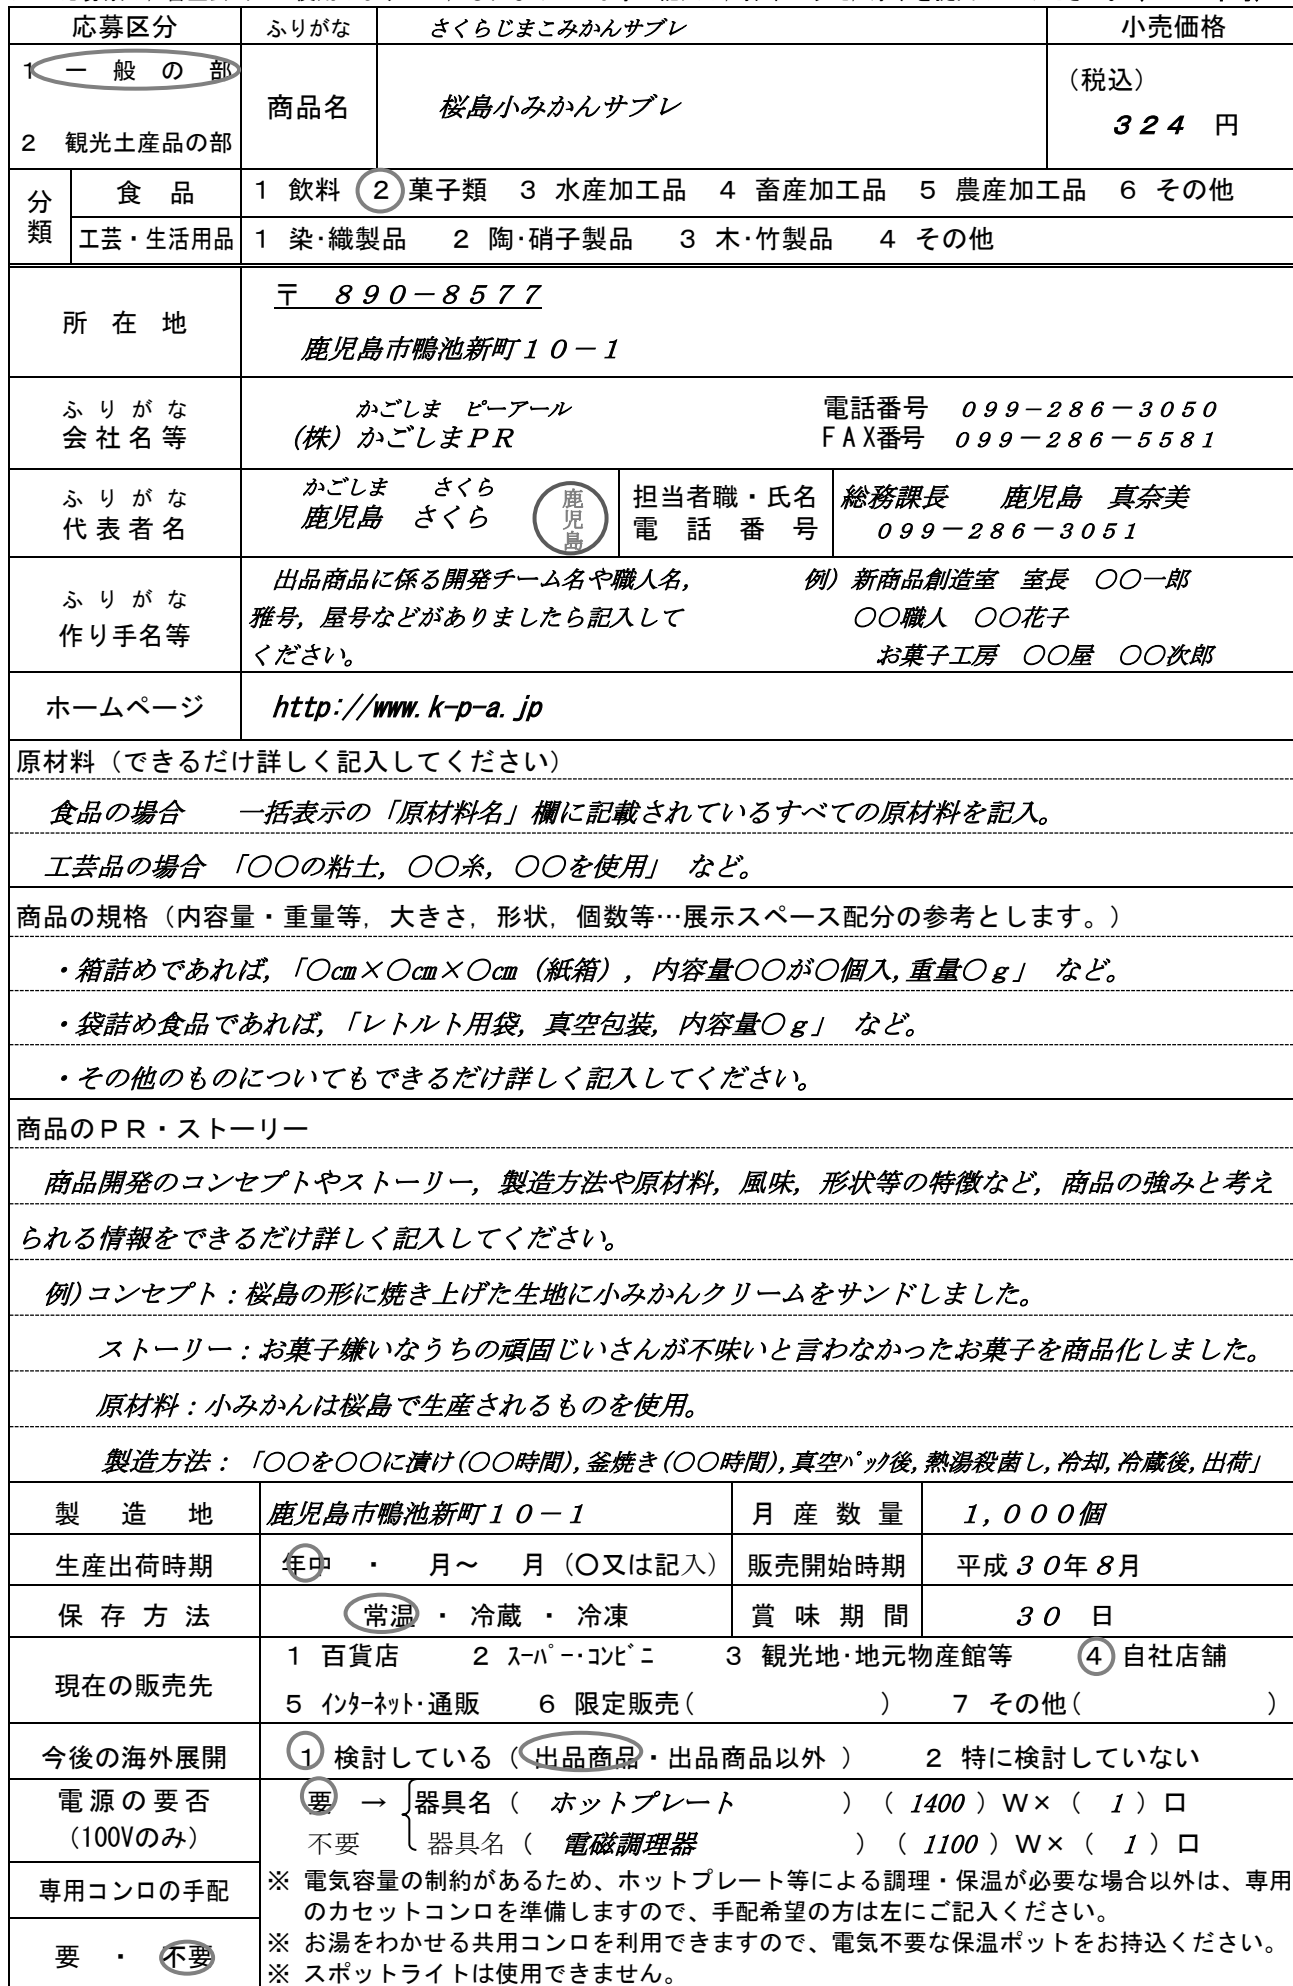 応募区分 ふりがな さくらじまこみかんサブレ 小売価格
1 一般の部 商品名 桜島小みかんサブレ (税込)
324 円
2 観光土産品の部
分類 食品 1 飲料 2 菓子類 3 水産加工品 4 畜産加工品 5 農産加工品 6 その他
工芸・生活用品 1 染・織製品 2 陶・硝子製品 3 木・竹製品 4 その他
所在地 〒 890-8577
鹿児島市鴨池新町10-1
ふりがな かごしま ピーアール 電話番号 099-286-3050
会社名等 (株)かごしまPR FAX番号 099-286-5581
ふりがな かごしま さくら 鹿児島 担当者職・氏名 総務課長 鹿児島 真奈美
代表者名 鹿児島 さくら 電話番号 099-286-3051
ふりがな 出品商品に係る開発チーム名や職人名, 例) 新商品創造室 室長 ○○一郎
作り手名等 雅号,屋号などがありましたら記入して ○○職人 ○○花子
ください。 お菓子工房 ○○屋 ○○次郎
ホームページ http://www.k-p-a.jp
原材料(できるだけ詳しく記入してください)
食品の場合 一括表示の「原材料名」欄に記載されているすべての原材料を記入。
工芸品の場合 「○○の粘土,○○糸,○○を使用」 など。
商品の規格(内容量・重量等,大きさ,形状,個数等…展示スペース配分の参考とします。)
・箱詰めであれば,「○㎝×○㎝×○㎝(紙箱),内容量○○が○個入,重量○g」 など。
・袋詰め食品であれば,「レトルト用袋,真空包装,内容量○g」 など。
・その他のものについてもできるだけ詳しく記入してください。
商品のPR・ストーリー
商品開発のコンセプトやストーリー,製造方法や原材料,風味,形状等の特徴など,商品の強みと考え
られる情報をできるだけ詳しく記入してください。
例)コンセプト:桜島の形に焼き上げた生地に小みかんクリームをサンドしました。
ストーリー:お菓子嫌いなうちの頑固じいさんが不味いと言わなかったお菓子を商品化しました。
原材料:小みかんは桜島で生産されるものを使用。
製造方法:「○○を○○に漬け(○○時間),釜焼き(○○時間),真空ﾊﾟｯｸ後,熱湯殺菌し,冷却,冷蔵後,出荷」
製造地 鹿児島市鴨池新町10-1 月産数量 1,000個
生産出荷時期 年中 ・ 月～ 月(○又は記入) 販売開始時期 平成30年8月
保存方法 常温 ・ 冷蔵 ・ 冷凍 賞味期間 30 日
現在の販売先 1 百貨店 2 ｽｰﾊﾟｰ･ｺﾝﾋﾞﾆ 3 観光地･地元物産館等 4 自社店舗
5 ｲﾝﾀｰﾈｯﾄ･通販 6 限定販売( ) 7 その他( )
今後の海外展開 1 検討している( 出品商品・出品商品以外 ) 2 特に検討していない
電源の要否 要 → 器具名( ホットプレート )( 1400 )W×( 1 )口
(100Vのみ) 不要 器具名( 電磁調理器 )( 1100 )W×( 1 )口
専用コンロの手配 ※ 電気容量の制約があるため、ホットプレート等による調理・保温が必要な場合以外は、専用
のカセットコンロを準備しますので、手配希望の方は左にご記入ください。
要 ・ 不要 ※ お湯をわかせる共用コンロを利用できますので、電気不要な保温ポットをお持込ください。
※ スポットライトは使用できません。